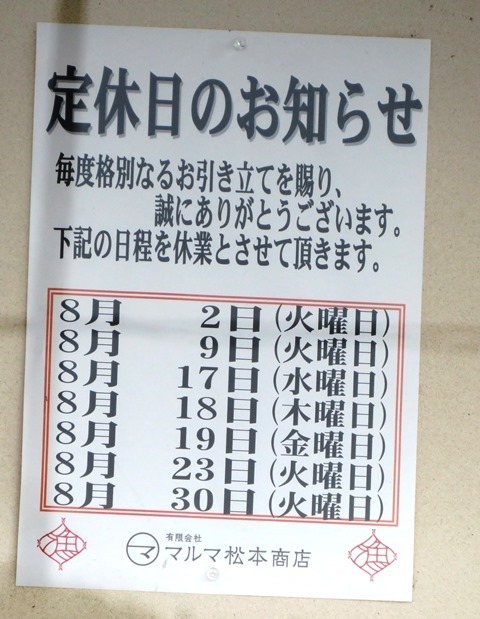 定休日のお知らせ
毎度格別なるお引き立てを賜り、
誠にありがとうございます。
下記の日程を休業とさせて頂きます。
8月 2日(火曜日)
8月 9日(火曜日)
8月 17日(水曜日)
8月 18日(木曜日)
8月 19日(金曜日)
8月 23日(火曜日)
8月 30日(火曜日)
有限会社
マ マルマ松本商店
魚 魚